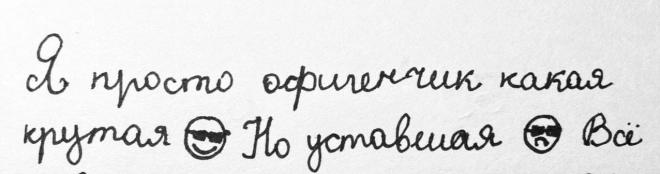 Я просто офигенчик какая
крутая 😎 Но уставшая ☹ Всё